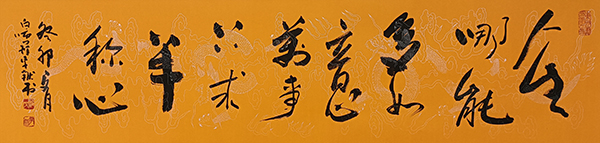 人生
哪能
多如
意
萬事
只求
半
称心
癸卯夏月